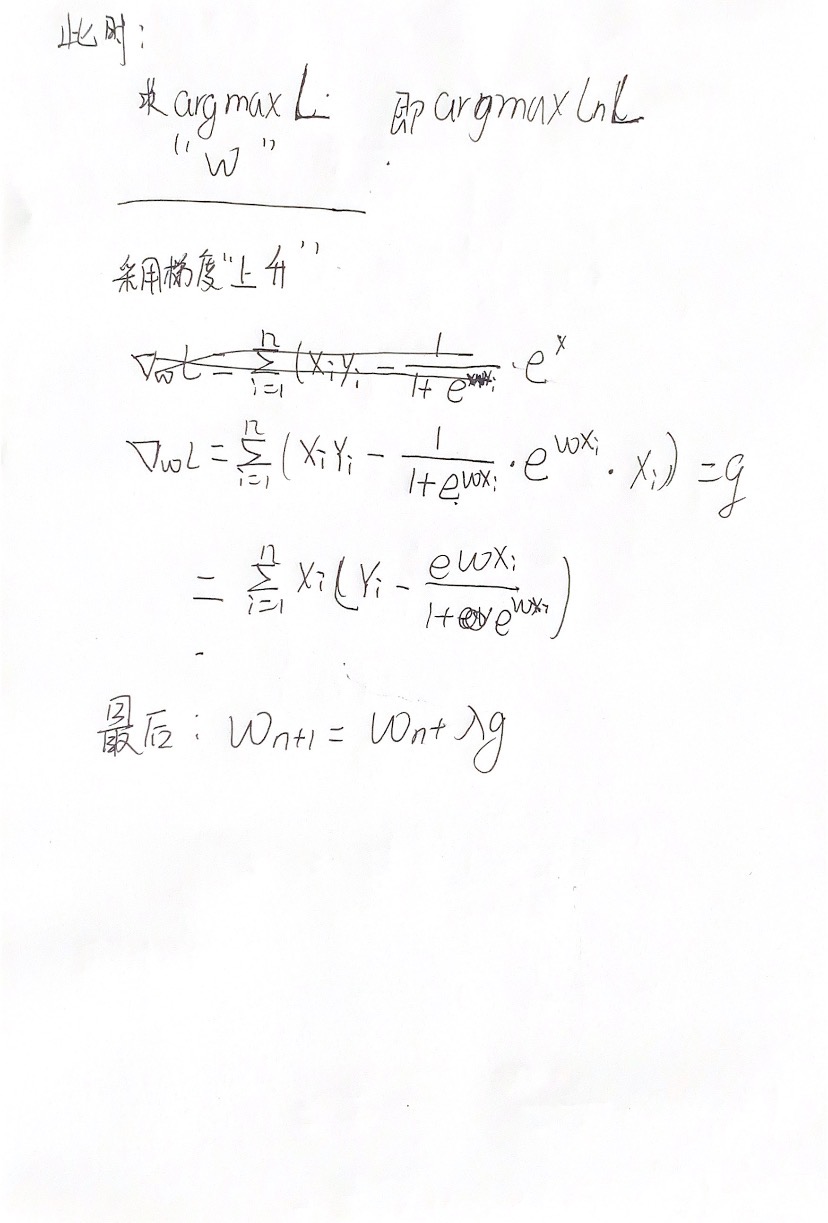 此时：
求 argmax L 即 argmax LnL
"W"
采用梯度"上升"
∇wL = Σ_{i=1}^{n} (XiYi - 1/(1+e^{wxi}) · e^x
∇wL = Σ_{i=1}^{n} (XiYi - 1/(1+e^{wxi}) · e^{wxi} · xi) = g
= Σ_{i=1}^{n} Xi(Yi - e^{wxi}/(1+e^{wxi}))
最后：W_{n+1} = W_n + λg